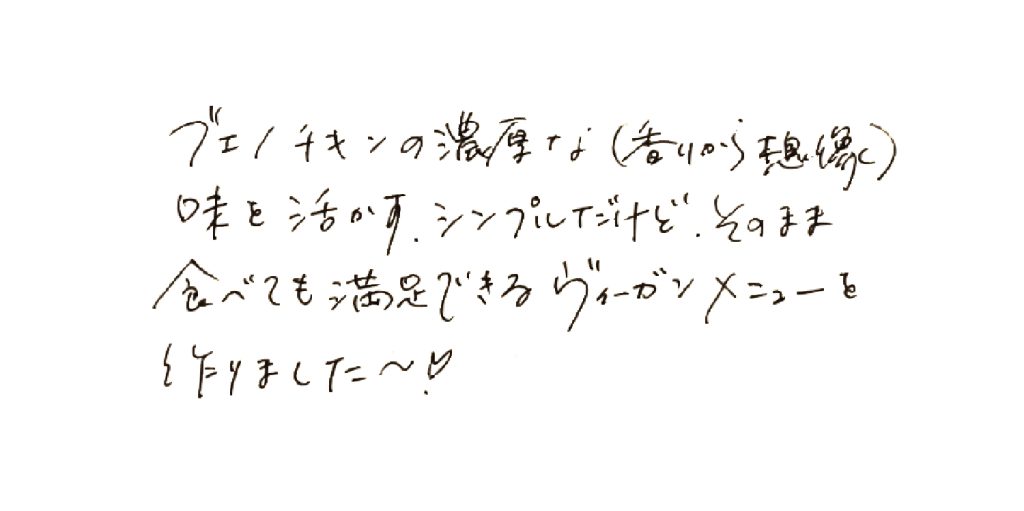 ブエノチキンの濃厚な(香りから想像)
味を活かす、シンプルだけど、そのまま
食べても満足できるヴィーガンメニューを
作りました〜!♡